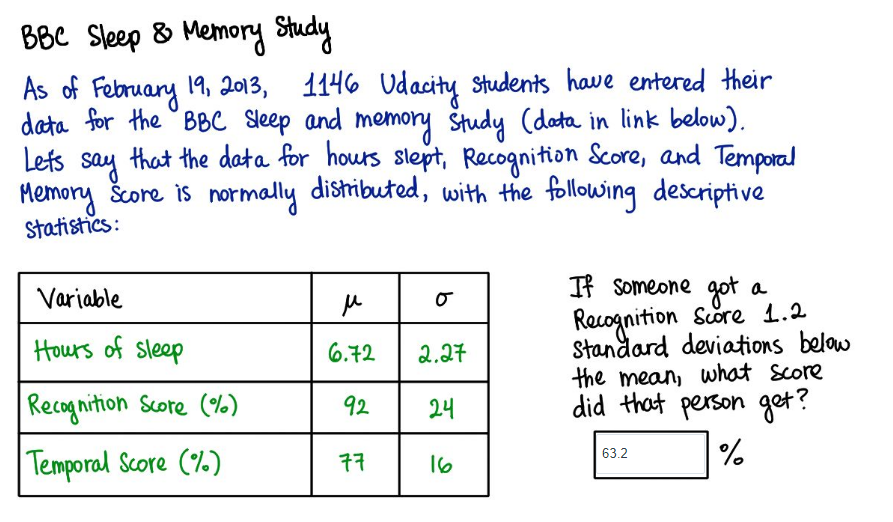 BBC Sleep & Memory Study
As of February 19, 2013, 1146 Udacity students have entered their
data for the BBC Sleep and memory Study (data in link below).
Let's say that the data for hours slept, Recognition Score, and Temporal
Memory Score is normally distributed, with the following descriptive
statistics:
Variable μ σ
Hours of Sleep 6.72 2.27
Recognition Score (%) 92 24
Temporal Score (%) 77 16
If someone got a
Recognition Score 1.2
standard deviations below
the mean, what score
did that person get?
63.2 %